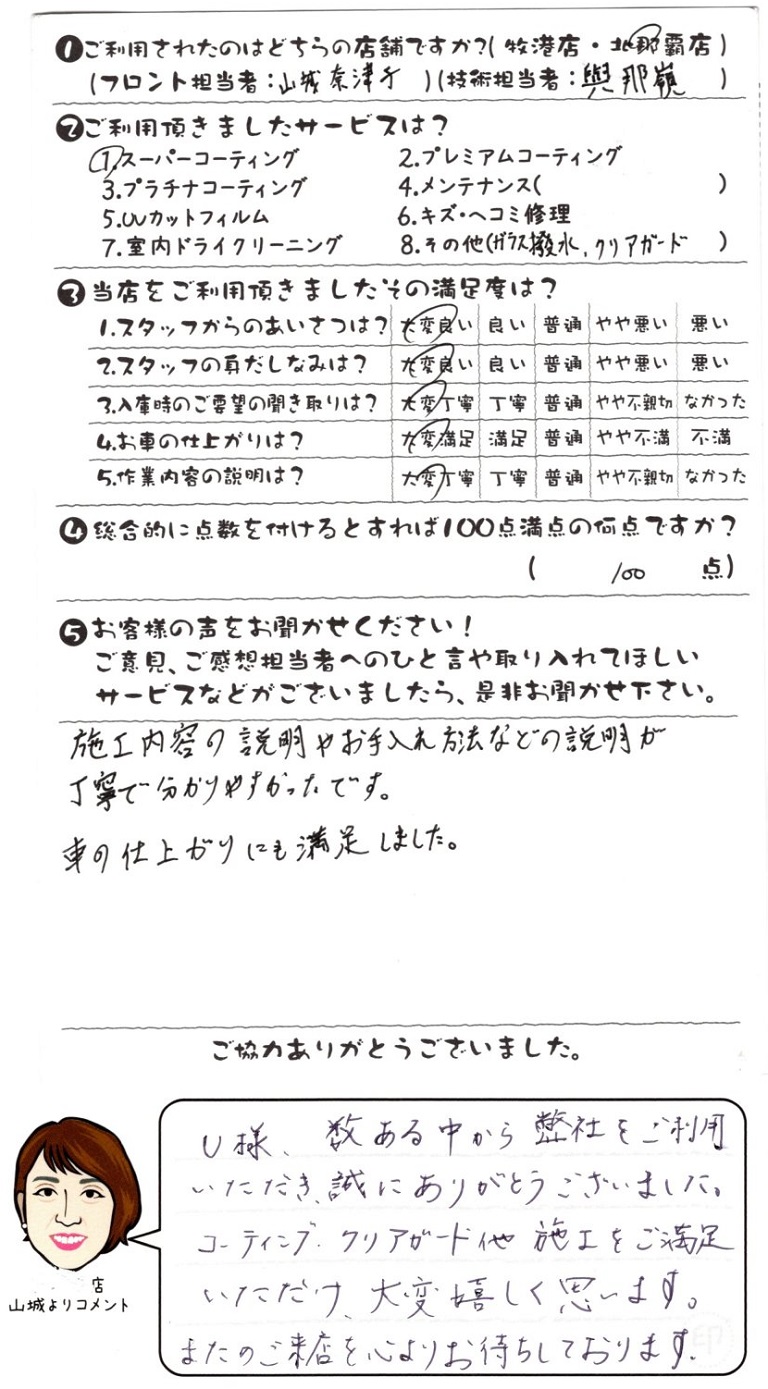 ❶ご利用されたのはどちらの店舗ですか?(牧港店・北那覇店)
(フロント担当者:山城奈津子 )(技術担当者:與那嶺 )
❷ご利用頂きましたサービスは?
1.スーパーコーティング 2.プレミアムコーティング
3.プラチナコーティング 4.メンテナンス( )
5.UVカットフィルム 6.キズ・ヘコミ修理
7.室内ドライクリーニング 8.その他(ガラス撥水、クリアガード )
❸当店をご利用頂きましたその満足度は?
1.スタッフからのあいさつは? 大変良い 良い 普通 やや悪い 悪い
2.スタッフの身だしなみは? 大変良い 良い 普通 やや悪い 悪い
3.入庫時のご要望の聞き取りは? 大変丁寧 丁寧 普通 やや不親切 なかった
4.お車の仕上がりは? 大変満足 満足 普通 やや不満 不満
5.作業内容の説明は? 大変丁寧 丁寧 普通 やや不親切 なかった
❹総合的に点数を付けるとすれば100点満点の何点ですか?
( 100 点)
❺お客様の声をお聞かせください!
ご意見、ご感想担当者へのひと言や取り入れてほしい
サービスなどがございましたら、是非お聞かせ下さい。
施工内容の説明やお手入れ方法などの説明が
丁寧で分かりやすかったです。
車の仕上がりにも満足しました。
ご協力ありがとうございました。
U様、数ある中から弊社をご利用
いただき、誠にありがとうございました。
コーティング、クリアガード他 施工をご満足
いただけ、大変嬉しく思います。
またのご来店を心よりお待ちしております。
店
山城よりコメント
印